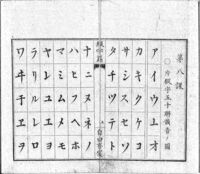 第八課
アイウエオ
カキクケコ
サシスセソ
タチツテト
ナニヌネノ
ハヒフヘホ
マミムメモ
ヤイユエヨ
ラリルレロ
ワヰウヱヲ